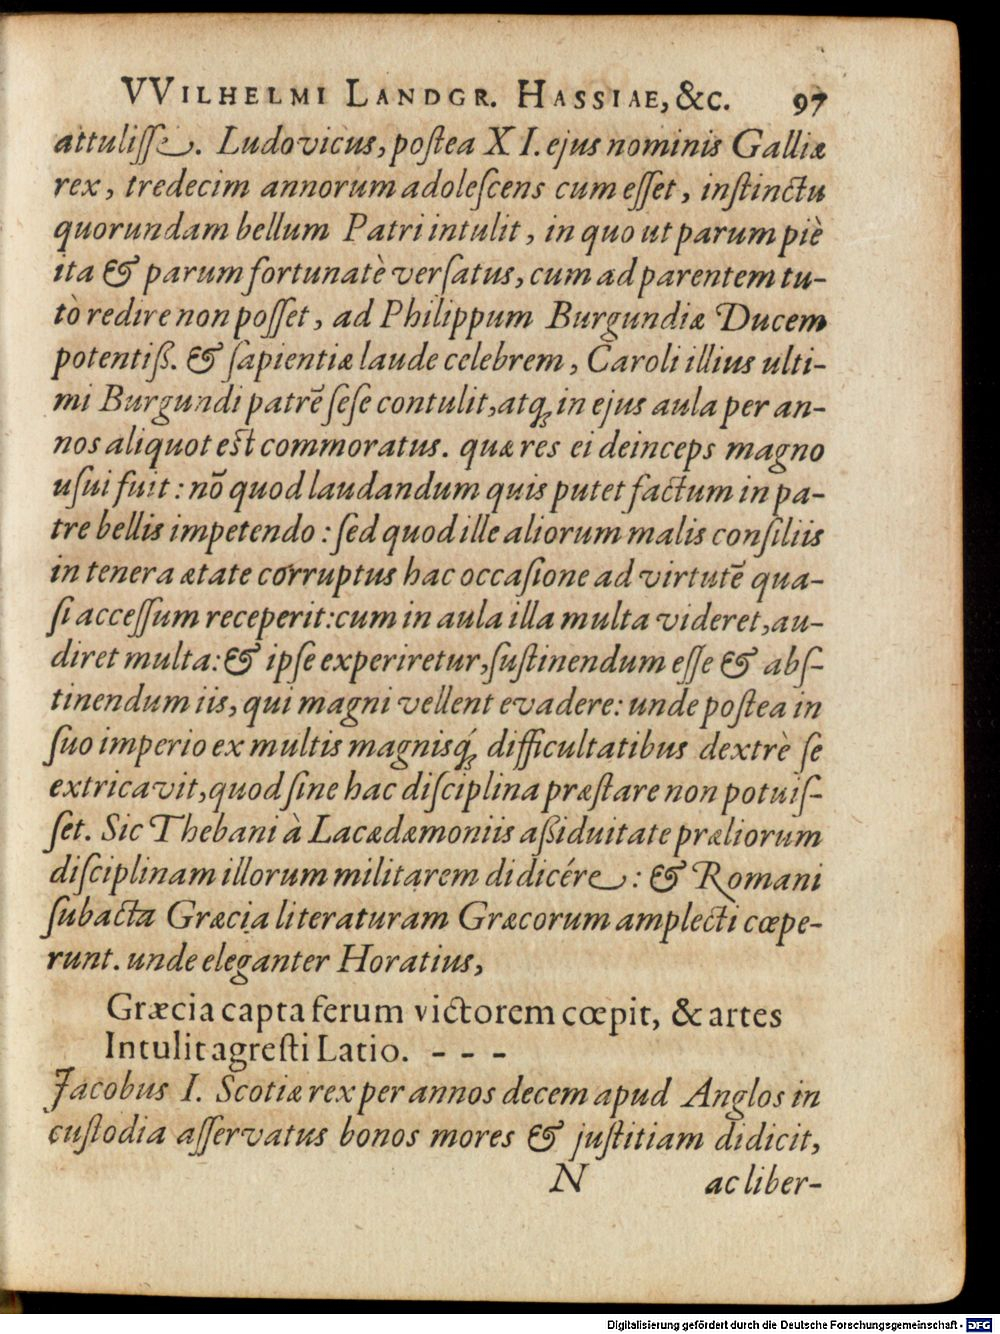 VVILHELMI LANDGR. HASSIAE, &c. 97
attulisse. Ludovicus, postea XI. ejus nominis Galliæ
rex, tredecim annorum adolescens cum esset, instinctu
quorundam bellum Patri intulit, in quo ut parum piè
ita & parum fortunatè versatus, cum ad parentem tu-
tò redire non posset, ad Philippum Burgundiæ Ducem
potentiß. & sapientiæ laude celebrem, Caroli illius ulti-
mi Burgundi patrē sese contulit, atq; in ejus aula per an-
nos aliquot est commoratus. quæ res ei deinceps magno
usui fuit: nō quod laudandum quis putet factum in pa-
tre bellis impetendo: sed quod ille aliorum malis consiliis
in tenera ætate corruptus hac occasione ad virtutē qua-
si accessum receperit: cum in aula illa multa videret, au-
diret multa: & ipse experiretur, sustinendum esse & abs-
tinendum iis, qui magni vellent evadere: unde postea in
suo imperio ex multis magnisq́; difficultatibus dextrè se
extricavit, quod sine hac disciplina præstare non potuis-
set. Sic Thebani à Lacædæmoniis aßiduitate præliorum
disciplinam illorum militarem didicére: & Romani
subacta Græcia literaturam Græcorum amplecti cœpe-
runt. unde eleganter Horatius,
Græcia capta ferum victorem cœpit, & artes
Intulit agresti Latio. - - -
Jacobus I. Scotiæ rex per annos decem apud Anglos in
custodia asservatus bonos mores & justitiam didicit,
N ac liber-
Digitalisierung gefördert durch die Deutsche Forschungsgemeinschaft - DFG